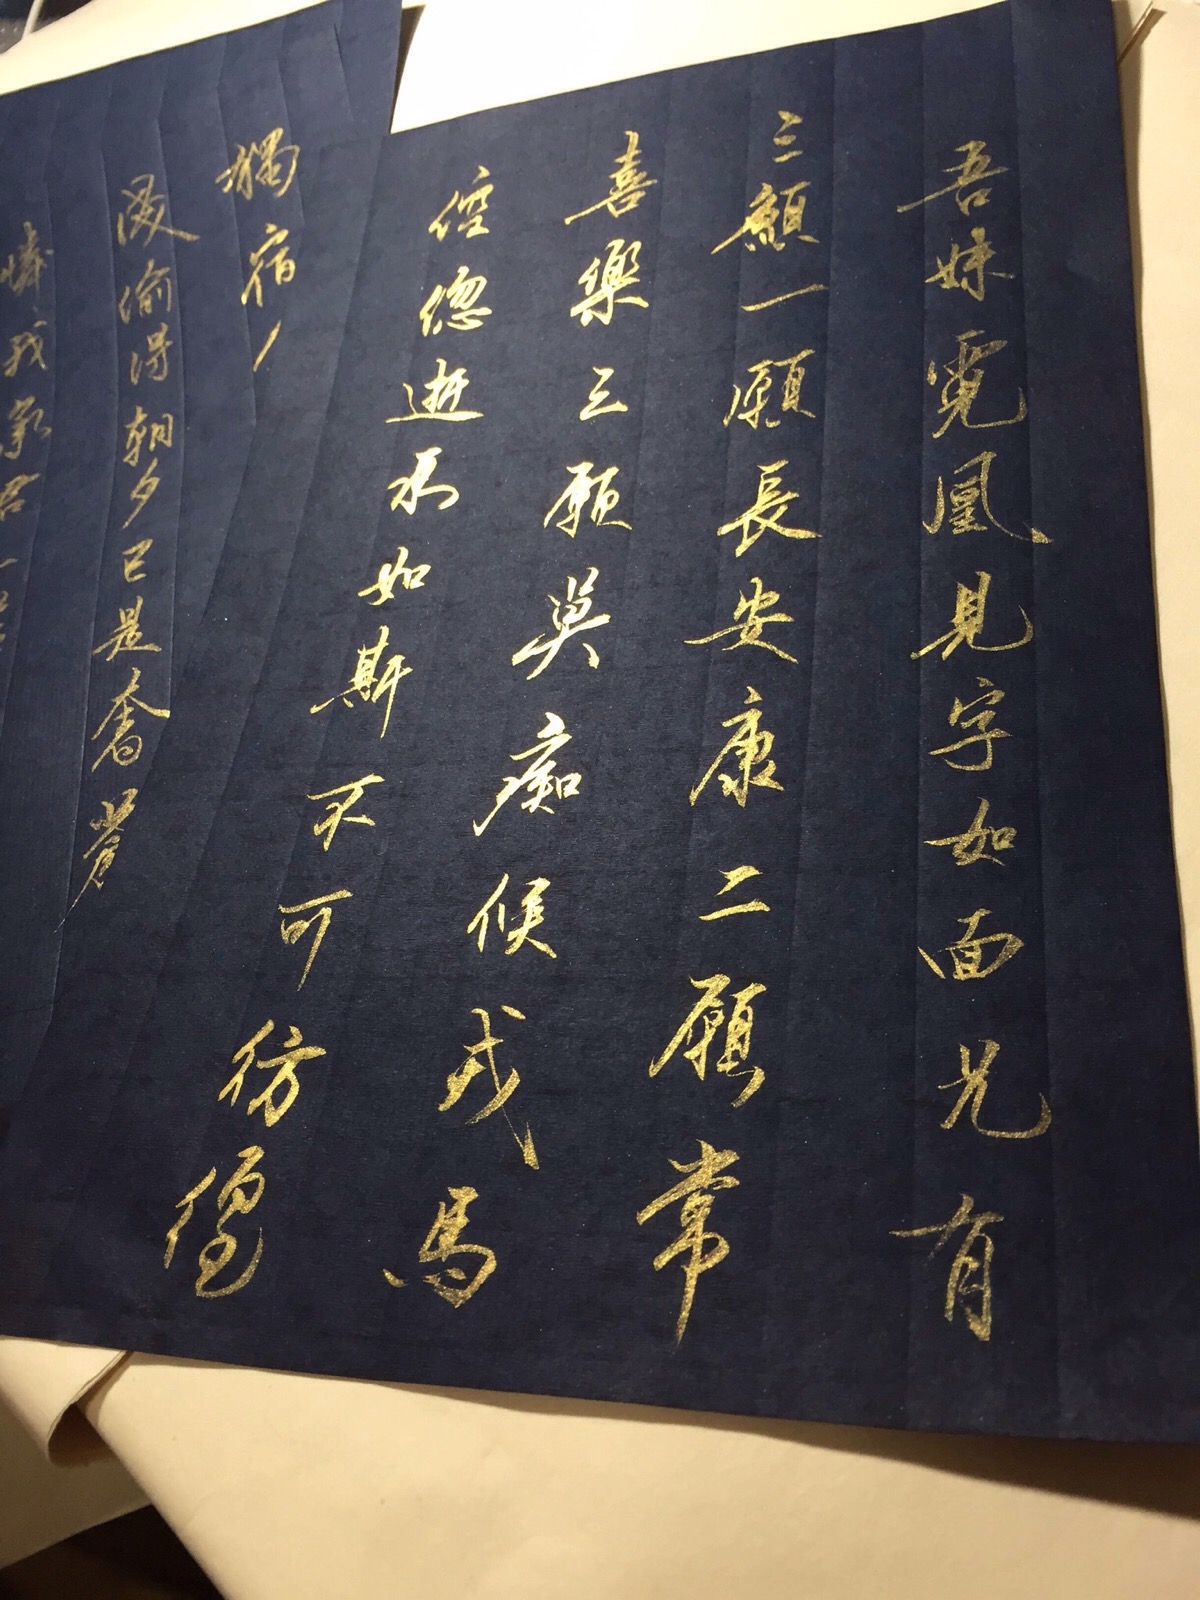 吾妹霓凰見字如面兄有
三願一願長安康二願常
喜樂三願莫痴候戎馬
倥傯逝水如斯不可彷徨
獨宿
偷得朝夕已是奢
憐我